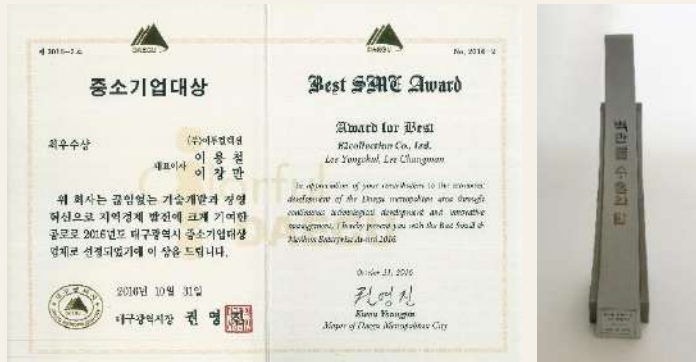 제 2016-2 호
DAEGU
중소기업대상
최우수상
(주)이투컬렉션
대표이사 이 용 철
이 창 만
위 회사는 끊임없는 기술개발과 경영
혁신으로 지역경제 발전에 크게 기여한
공로로 2016년도 대구광역시 중소기업대상
업체로 선정되었기에 이 상을 드립니다.
2016년 10월 31일
대구광역시장 권 영 진
No. 2016-2
DAEGU
Best SME Award
Award for Best
E2collection Co., Ltd.
Lee Yongchul, Lee Changman
In appreciation of your contributions to the economic
development of the Daegu metropolitan area through
continuous technological development and innovative
management, I hereby present you with the Best Small &
Medium Enterprise Award 2016
October 31, 2016
권영진
Kwon Youngjin
Mayor of Daegu Metropolitan City
Colorful
DAEGU
백만불 수출의 탑